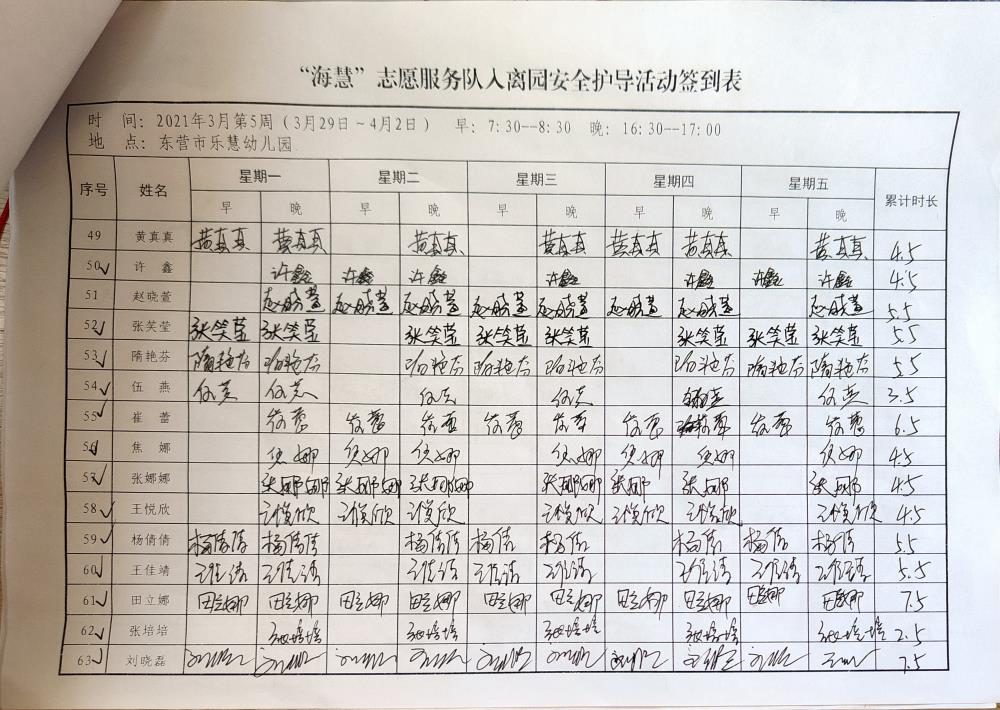 “海慧”志愿服务队入离园安全护导活动签到表
时 间：2021年3月第5周（3月29日～4月2日） 早：7:30--8:30 晚：16:30--17:00
地 点：东营市乐慧幼儿园
序号 姓名 星期一 星期二 星期三 星期四 星期五 累计时长
早 晚 早 晚 早 晚 早 晚 早 晚
49 黄真真 黄真真 黄真真 黄真真 黄真真 黄真真 黄真真 黄真真 4.5
50 许鑫 许鑫 许鑫 许鑫 许鑫 许鑫 许鑫 许鑫 4.5
51 赵晓萱 赵晓萱 赵晓萱 赵晓萱 赵晓萱 赵晓萱 赵晓萱 赵晓萱 赵晓萱 5.5
52 张笑莹 张笑莹 张笑莹 张笑莹 张笑莹 张笑莹 张笑莹 张笑莹 张笑莹 5.5
53 隋艳芬 隋艳芬 隋艳芬 隋艳芬 隋艳芬 隋艳芬 隋艳芬 隋艳芬 隋艳芬 5.5
54 伍燕 伍燕 伍燕 伍燕 伍燕 伍燕 3.5
55 崔蕾 崔蕾 崔蕾 崔蕾 崔蕾 崔蕾 崔蕾 崔蕾 崔蕾 6.5
56 焦娜 焦娜 焦娜 焦娜 焦娜 焦娜 焦娜 焦娜 4.5
57 张娜娜 张娜娜 张娜娜 张娜娜 张娜娜 张娜 张娜 张娜 4.5
58 王悦欣 王悦欣 王悦欣 王悦欣 王悦欣 王悦欣 王悦欣 王悦欣 4.5
59 杨倩倩 杨倩倩 杨倩倩 杨倩倩 杨倩 杨倩 杨倩 杨倩 杨倩 5.5
60 王佳靖 王佳靖 王佳靖 王佳靖 王佳靖 王佳靖 王佳靖 王佳靖 王佳靖 5.5
61 田立娜 田立娜 田立娜 田立娜 田立娜 田立娜 田立娜 田立娜 田立娜 田立娜 田立娜 7.5
62 张培培 张培培 张培培 张培培 张培培 张培培 2.5
63 刘晓磊 7.5